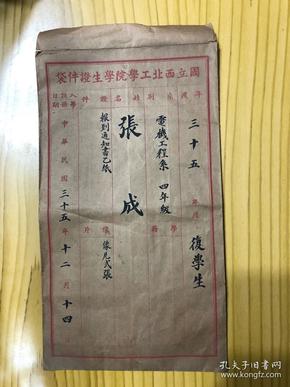 國立西北工學院學生證件袋
年度 三十五 年 月
復學生
系別 電機工程系 四年級
學籍
姓名 張成
證件 報到通知書乙紙
像片 像片弍張
入學註冊日期 中華民國三十五年十二月十四
孔夫子旧书网